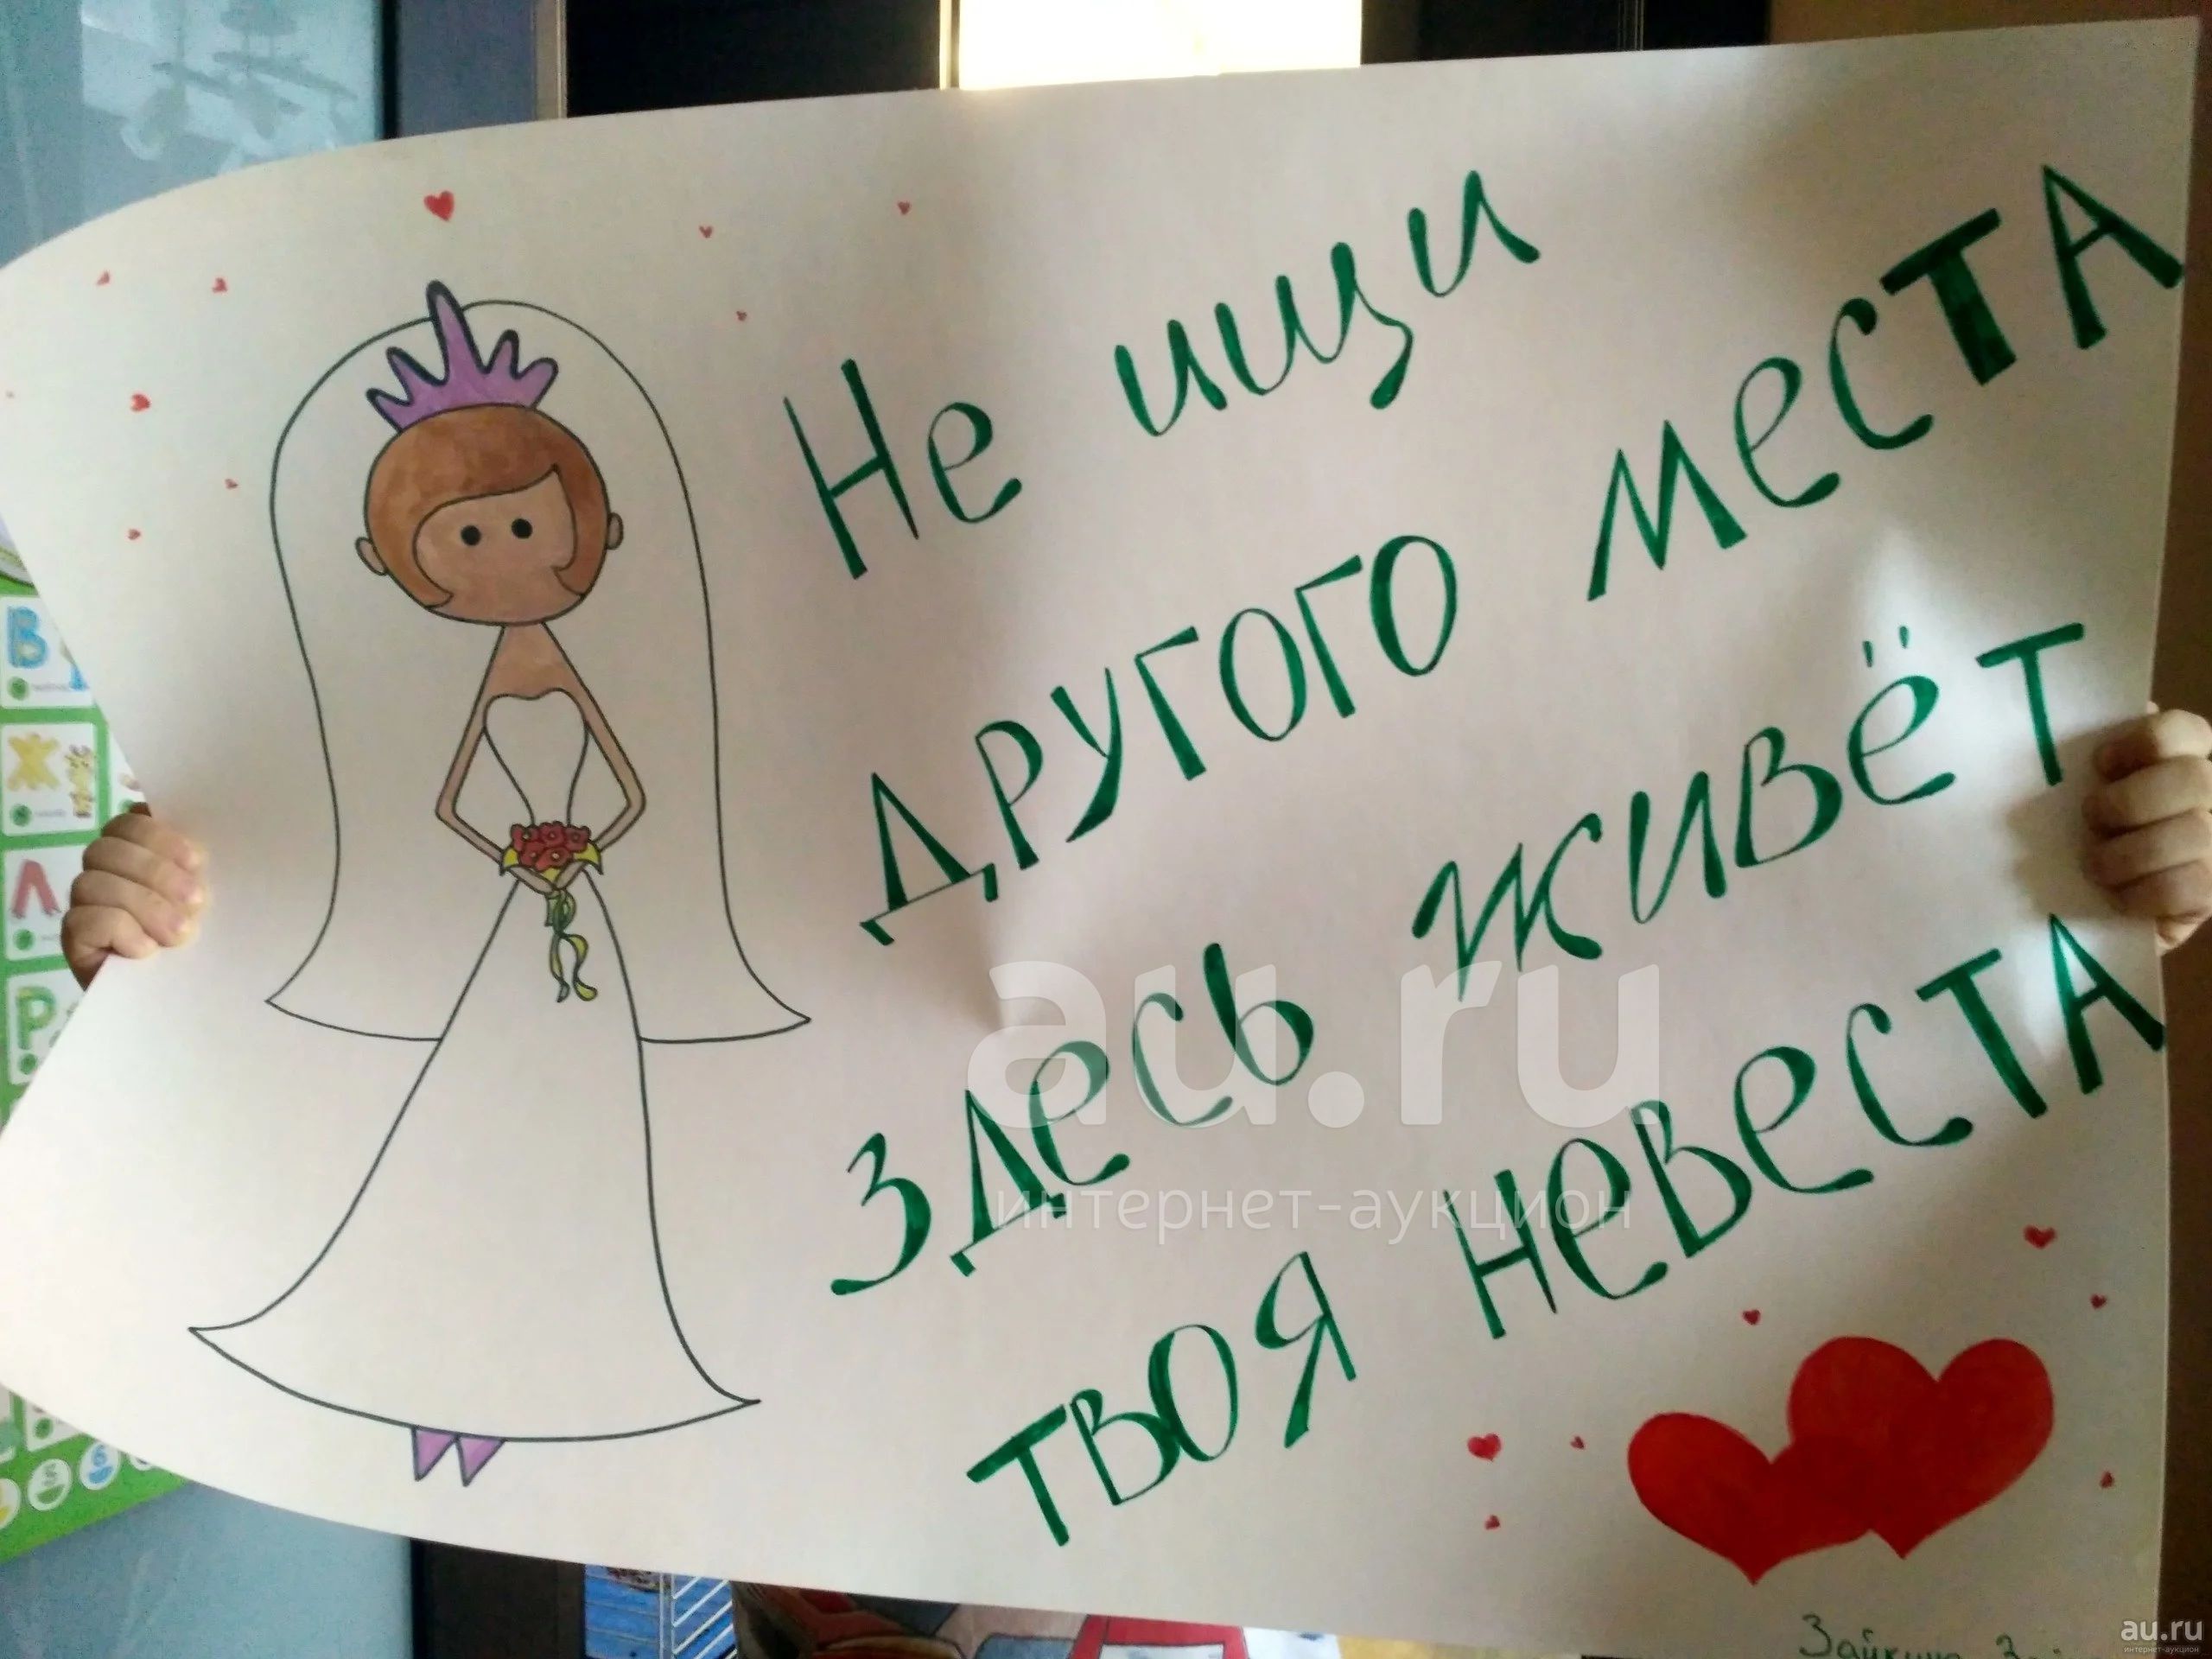 Не ищи
другого места
здесь живёт
твоя невеста
au.ru
интернет-аукцион
В
Ж
Л
Р
5
6
au.ru
интернет-аукцион